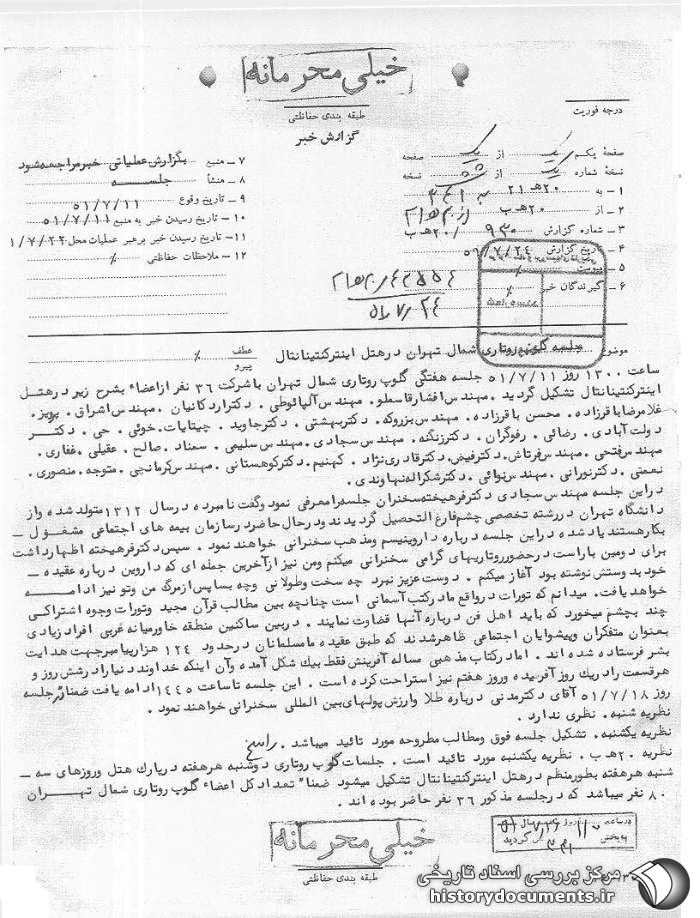 خیلی محرمانه
طبقه بندی حفاظتی
گزارش خبر
درجه فوریت
صفحه یکم یک از یک صفحه
نسخه شماره یک از نسخه
۱ ـ به ۲۰هـ ۲۱ ۳۴۱
۲ ـ از ۲۰هـ ب
۳ ـ شماره گزارش ۹۳۰ /۲۰هـ ب
۴ ـ تاریخ گزارش ۵۱/۷/۲۴
۵ ـ پیوست
۶ ـ گیرندگان خبر
۷ ـ منبع بگزارش عملیاتی خبر مراجعه شود
۸ ـ منشأ جلسه
۹ ـ تاریخ وقوع ۵۱/۷/۱۱
۱۰ ـ تاریخ رسیدن خبر به منبع ۵۱/۷/۱۱
۱۱ ـ تاریخ رسیدن خبر برهبر عملیات محل ۱/۷/۲۲
۱۲ ـ ملاحظات حفاظتی
موضوع جلسه کلوپ روتاری شمال تهران درهتل اینترکنتینانتال
عطف
پیرو
ساعت ۱۳۰۰ روز ۵۱/۷/۱۱ جلسه هفتگی کلوپ روتاری شمال تهران باشرکت ۳۶ نفر ازاعضاء بشرح زیر درهتل
اینترکنتینانتال تشکیل گردید . مهندس افشارقاسملو . مهندس آلپائوطی . دکتراردکانیان . مهندس اشراق . پرویز .
غلامرضا باقرزاده . محسن باقرزاده . مهندس بزروکه . دکتربهشتی . دکترجاوید . چیتایات . خوئی . حی . دکتر
دولت آبادی . رضائی . رفوگران . دکترزنگنه . مهندس سجادی . مهندس سلیمی . سمناد . صالح . عقیلی . غفاری .
مهندس فتحی . مهندس فرتاش . دکترفیض . دکترقادری نژاد . کهنیم . دکترکوهستانی . مهندس کرمانجی . متوجه . منصوری .
نعمتی . دکترنورانی . مهندس نوائی . دکترشکراله نهاوندی .
دراین جلسه مهندس سجادی دکترفرهیخته سخنران جلسه رامعرفی نمود وگفت نامبرده درسال ۱۳۱۲ متولد شده واز
دانشگاه تهران دررشته تخصصی چشم فارغ التحصیل گردیدند ودرحال حاضر درسازمان بیمه های اجتماعی مشغول ـ
بکارهستند یاد شده دراین جلسه درباره داروینیسم ومذهب سخنرانی خواهند نمود . سپس دکترفرهیخته اظهارداشت
برای دومین باراست درحضورروتاریهای گرامی سخنرانی میکنم ومن نیز ازآخرین جمله ای که داروین درباره عقیده ـ
خود بدوستش نوشته بود آغاز میکنم . دوست عزیز نبرد چه سخت وطولانی وچه بسا پس ازمرگ من وتو نیز ادامه
خواهد یافت . میدانم که تورات درواقع مادرکتب آسمانی است چنانچه بین مطالب قرآن مجید وتورات وجوه اشتراکی
چند بچشم میخورد که باید اهل فن درباره آنها قضاوت نمایند . دربین ساکنین منطقه خاورمیانه غربی افراد زیادی
بعنوان متفکران وپیشوایان اجتماعی ظاهرشدند که طبق عقیده مامسلمانان درحدود ۱۲۴ هزارپیامبرجهت هدایت
بشر فرستاده شده اند . امادرکتاب مذهبی مساله آفرینش فقط بیك شکل آمده وآن اینکه خداوند دنیا رادرشش روز و
هرقسمت رادریك روز آفریده وروز هفتم نیز استراحت کرده است . این جلسه تا ساعت ۱۴۴۵ ادامه یافت ضمناً درجلسه
روز ۵۱/۷/۱۸ آقای دکترمدنی درباره طلا وارزش پولهای بین المللی سخنرانی خواهند نمود .
نظریه شنبه . نظری ندارد .
نظریه یکشنبه . تشکیل جلسه فوق ومطالب مطروحه مورد تائید میباشد . راسخ
نظریه ۲۰هـ ب . نظریه یکشنبه مورد تائید است . جلسات کلوپ روتاری دوشنبه هرهفته درپارك هتل وروزهای سه ـ
شنبه هرهفته بطورمنظم درهتل اینترکنتینانتال تشکیل میشود ضمناً تعداد کل اعضاء کلوپ روتاری شمال تهران
۸۰ نفر میباشد که درجلسه مذکور ۳۶ نفر حاضر بوده اند .
خیلی محرمانه
طبقه بندی حفاظتی
مرکز بررسی اسناد تاریخی
historydocuments.ir